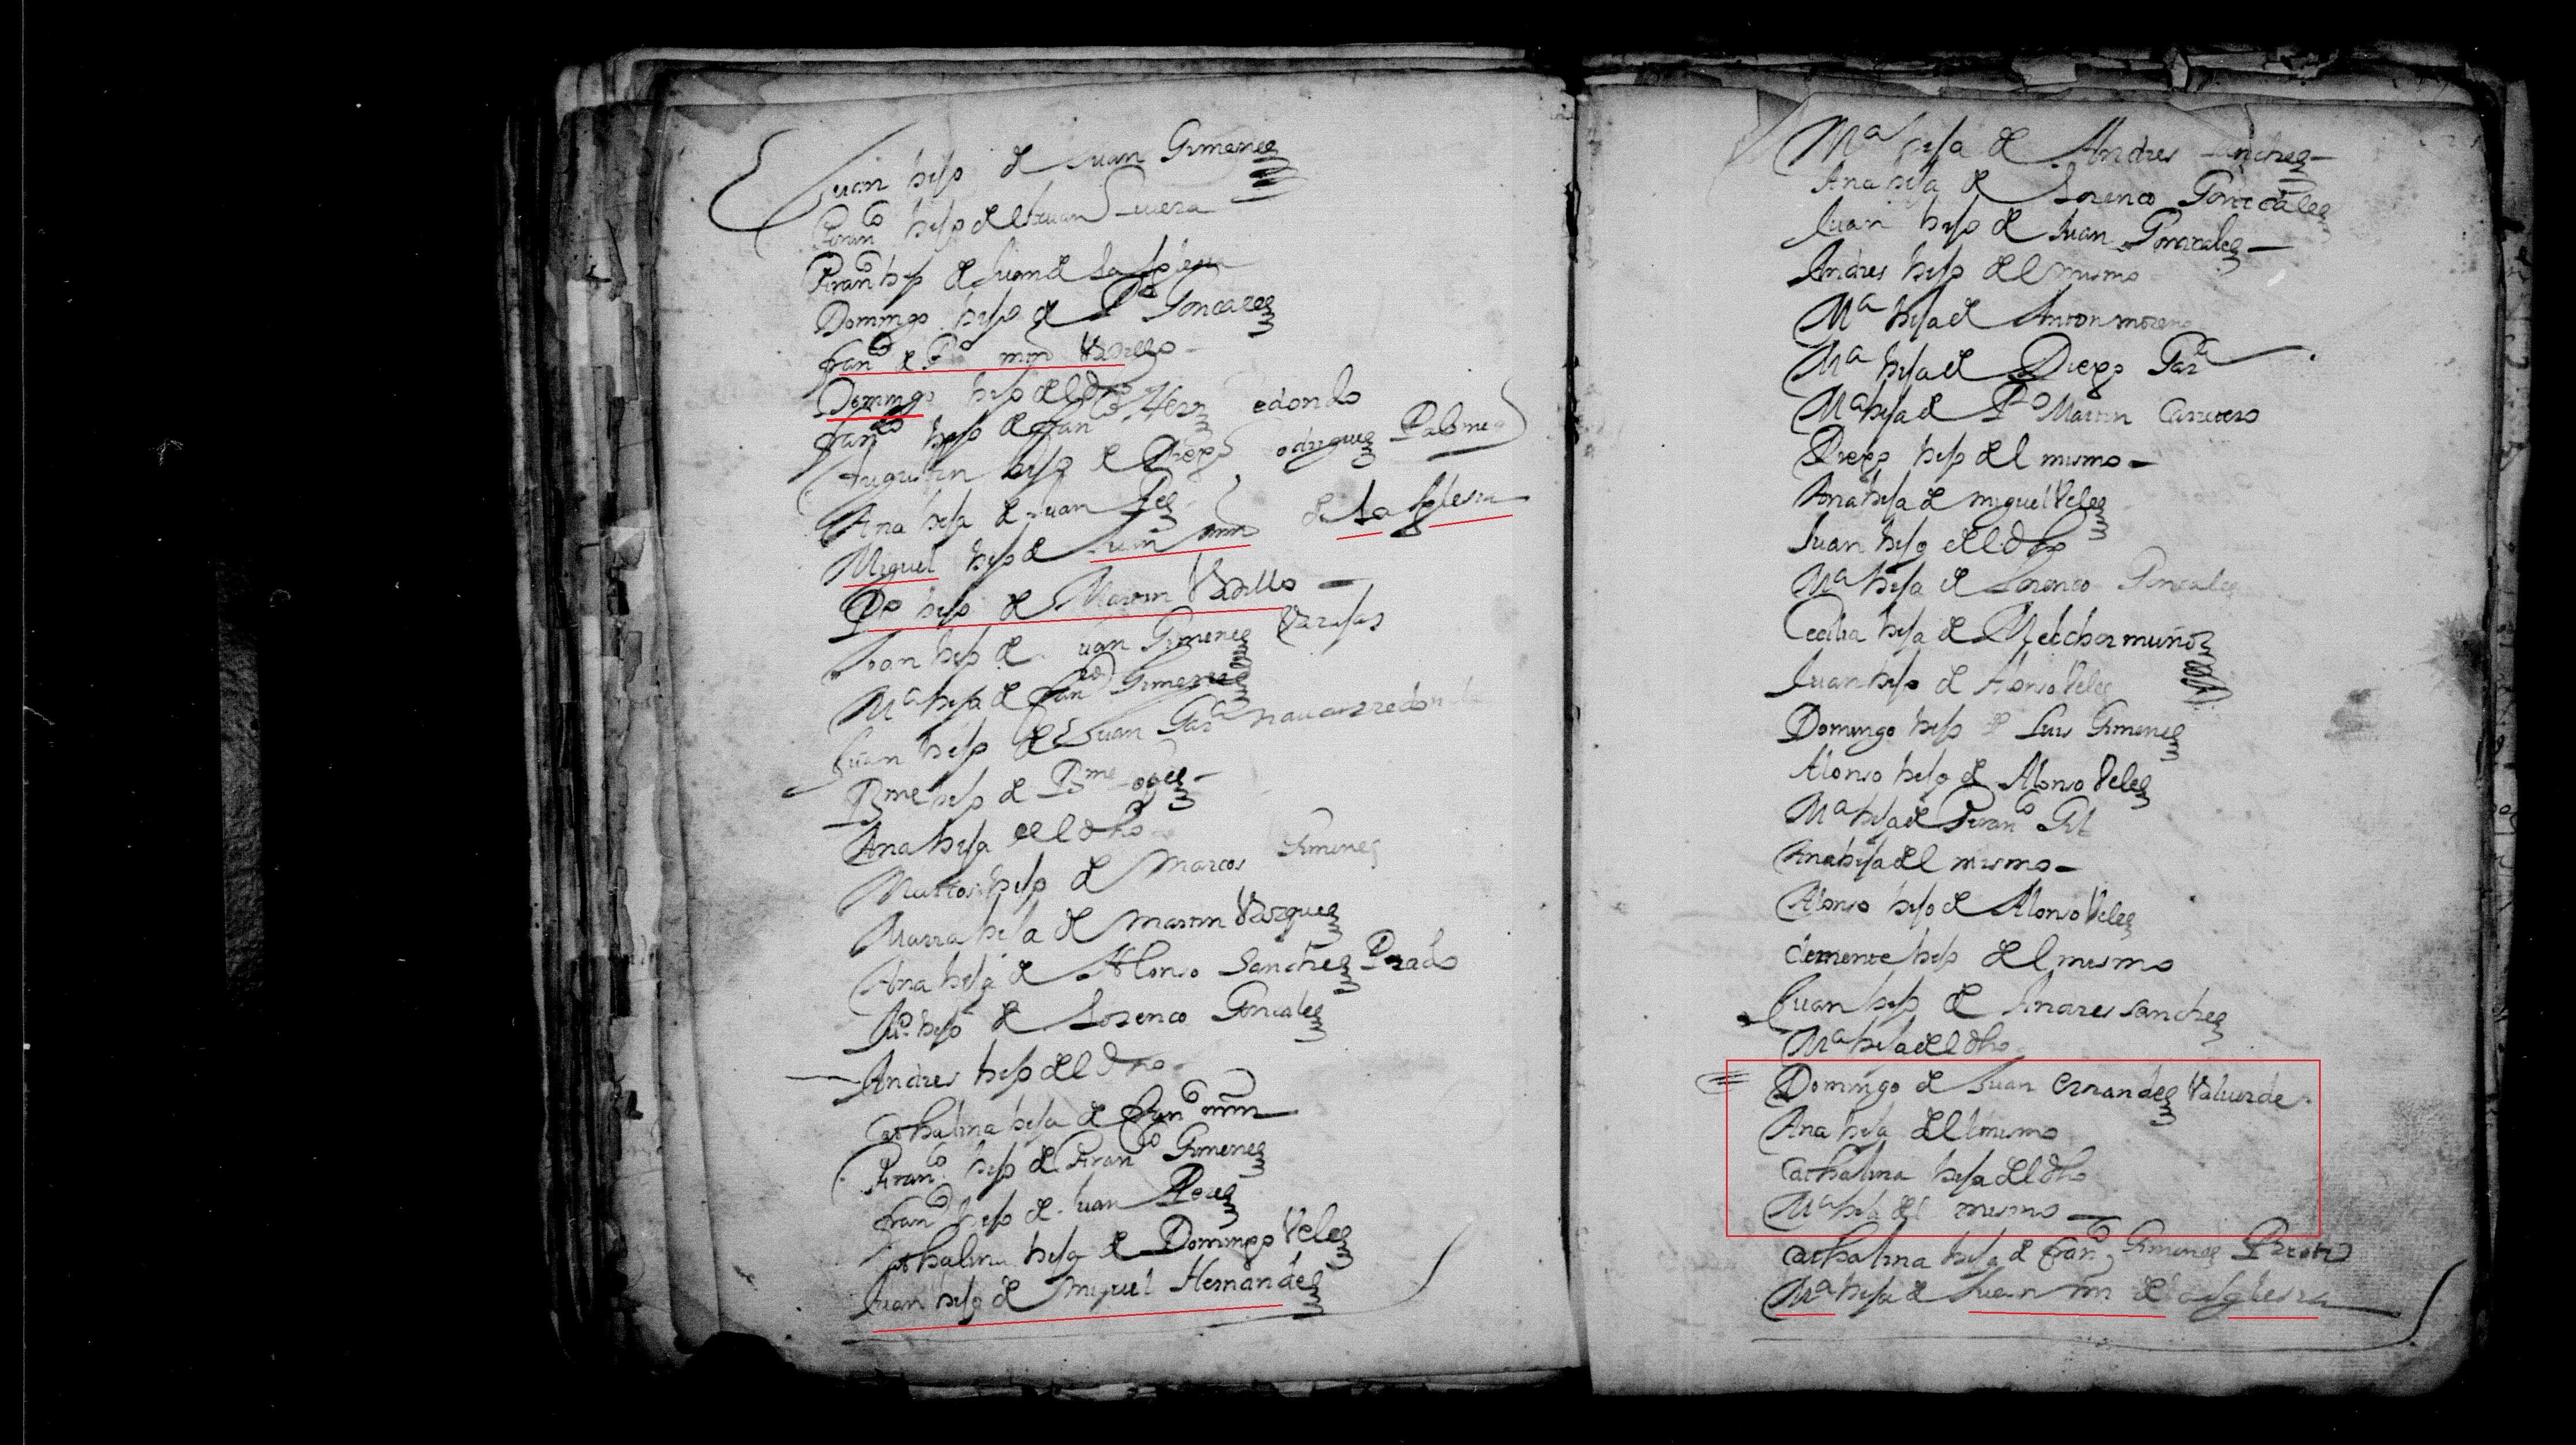 Juan hijo de Juan Gimenez
Franco hijo del Juan
Franco hijo de Juan de la Iglesia
Domingo hijo de Po Goncalez
franco de Po mrn Vadillo
Domingo hijo del dho
franco hijo de franco Hernz Redondo
Augustin hijo de Diego Rodriguez Palomeq
Ana hija de Juan Pez
Miguel hijo de Juan mrn de la Iglesia
Po hijo de Martin Vadillo
Joan hijo de Juan Gimenez Varajas
Ma hija de franco Gimenez
Juan hijo de Juan Gara nauarredonda
Bme hijo de Bme Lopez
Ana hija del dho
Marcos hijo de Marcos Gimenez
Maria hija de Martin Vazquez
Ana hija de Alonso Sanchez Prado
Juo hijo de Lorenco Goncalez
Andres hijo del dho
Cathalina hija de franco mrn
Franco hijo de Franco Gimenez
franco hijo de Juan Perez
Cathalina hija de Domingo Velez
Juan hijo de miguel Hernandez
Ma hija de Andres Sanchez
Ana hija de Lorenco Goncalez
Juan hijo de Juan Gonzalez
Andres hijo del mismo
Ma hija de Anton moreno
Ma hija de Diego Gara
Ma hija de Po Martin Carretero
Diego hijo del mismo
Ana hija de miguel Velez
Juan hijo del dho
Ma hija de Lorenco Goncalez
Cecilia hija de Melchor muñoz
Juan hijo de Alonso Velez
Domingo hijo de Luis Gimenez
Alonso hijo de Alonso Velez
Ma hija de Franco Gil
Ana hija del mismo
Alonso hijo de Alonso Velez
Clemente hijo del mesmo
Juan hijo de Andres sanchez
Ma hija del dho
Domingo de Juan Ernandez Valuerde
Ana hija del mismo
Cathalina hija del dho
Ma hija del mismo
Cathalina hija de franco Gimenez Prieto
Ma hija de Juan mrn de la Iglesia